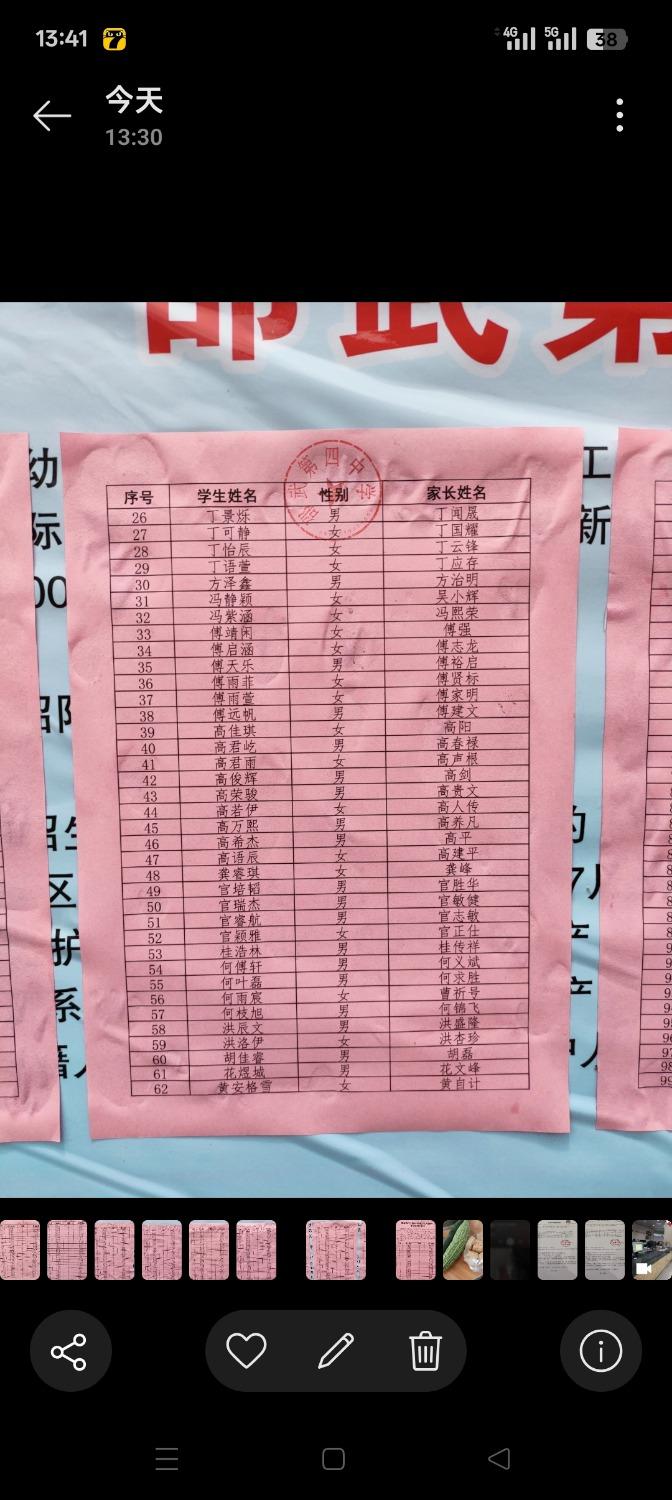 13:41
4G
5G
38
今天
13:30
邵武第
邵武第四中学
序号 学生姓名 性别 家长姓名
26 丁景烁 男 丁闻晟
27 丁可静 女 丁国耀
28 丁怡辰 女 丁云锋
29 丁语萱 女 丁应存
30 方泽鑫 男 方治明
31 冯静颖 女 吴小辉
32 冯紫涵 女 冯熙荣
33 傅靖闲 女 傅强
34 傅启涵 女 傅志龙
35 傅天乐 男 傅裕启
36 傅雨菲 女 傅贤标
37 傅雨萱 女 傅家明
38 傅远帆 男 傅建文
39 高佳琪 女 高阳
40 高君屹 男 高春禄
41 高君雨 女 高声根
42 高俊辉 男 高剑
43 高荣骏 男 高贵文
44 高若伊 女 高人传
45 高万熙 男 高养凡
46 高希杰 男 高平
47 高语辰 女 高建平
48 龚睿琪 女 龚峰
49 官培韬 男 官胜华
50 官瑞杰 男 官敏健
51 官睿航 男 官志敏
52 官颖雅 女 官正仕
53 桂浩林 男 桂传祥
54 何傅轩 男 何义斌
55 何叶磊 男 何求胜
56 何雨宸 女 曹祈号
57 何枝旭 男 何锦飞
58 洪辰文 男 洪盛隆
59 洪洛伊 女 洪杏珍
60 胡佳睿 男 胡磊
61 花煜城 男 花文峰
62 黄安格雪 女 黄自计